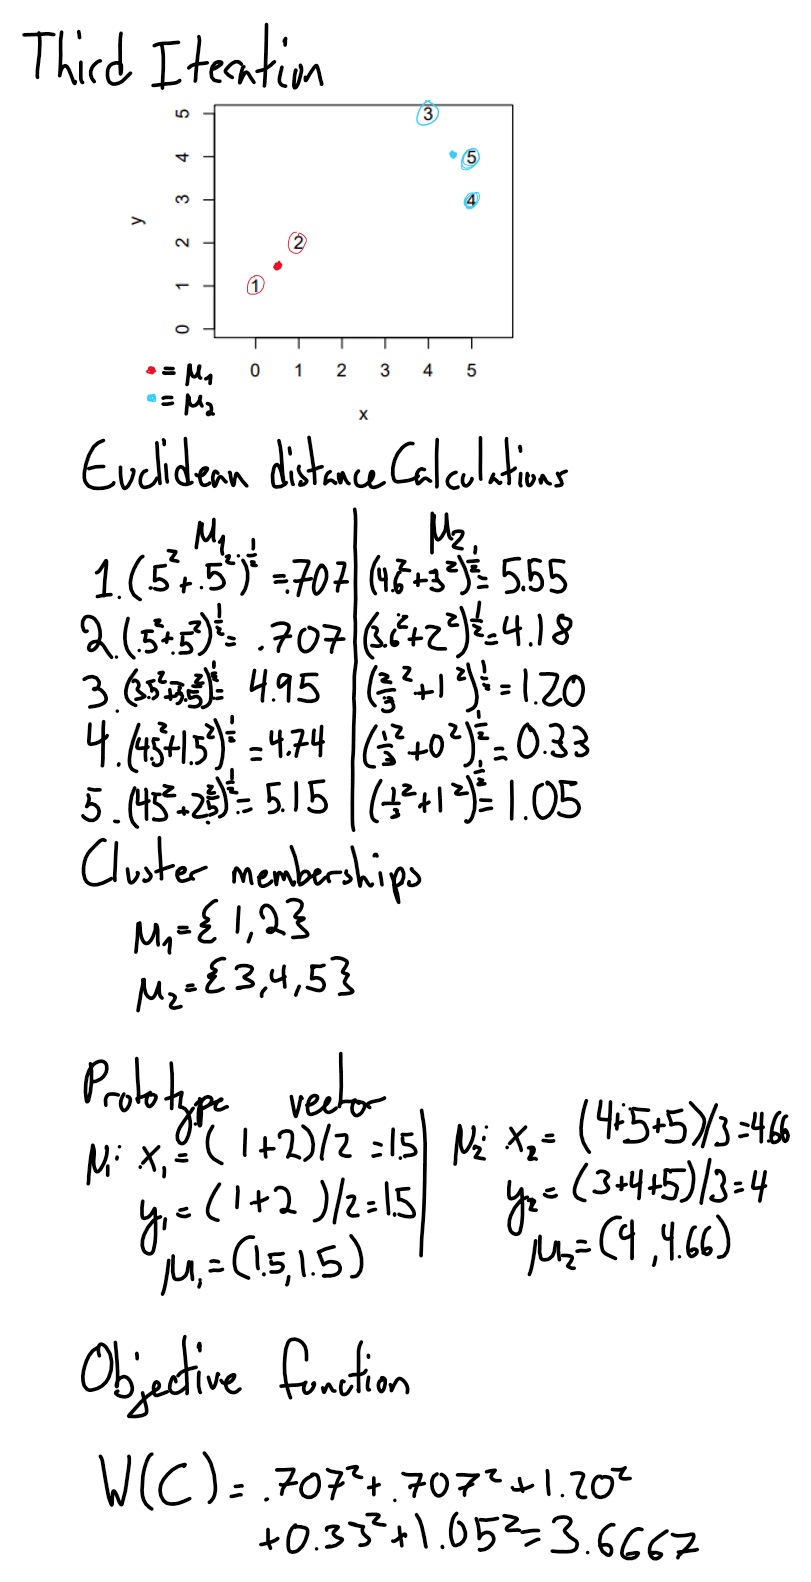 Third Iteration
5
4
3
2
1
0
y
3
5
4
2
1
0 1 2 3 4 5
x
• = μ₁
• = μ₂
Euclidean distance Calculations
μ₁ | μ₂
1. (.5²+.5²)^½ = .707 | (4.6²+3²)^½ = 5.55
2. (.5²+.5²)^½ = .707 | (3.6²+2²)^½ = 4.18
3. (3.5²+3.5²)^½ = 4.95 | (2/3²+1²)^½ = 1.20
4. (4.5²+1.5²)^½ = 4.74 | (1/3²+0²)^½ = 0.33
5. (4.5²+2.5²)^½ = 5.15 | (1/3²+1²)^½ = 1.05
Cluster memberships
μ₁ = {1,2}
μ₂ = {3,4,5}
Prototype vector
μ₁: x₁ = (1+2)/2 = 1.5 | μ₂: x₂ = (4+5+5)/3 = 4.66
y₁ = (1+2)/2 = 1.5 | y₂ = (3+4+5)/3 = 4
μ₁ = (1.5, 1.5) | μ₂ = (4, 4.66)
Objective function
W(C) = .707² + .707² + 1.20²
+0.33² + 1.05² = 3.6667